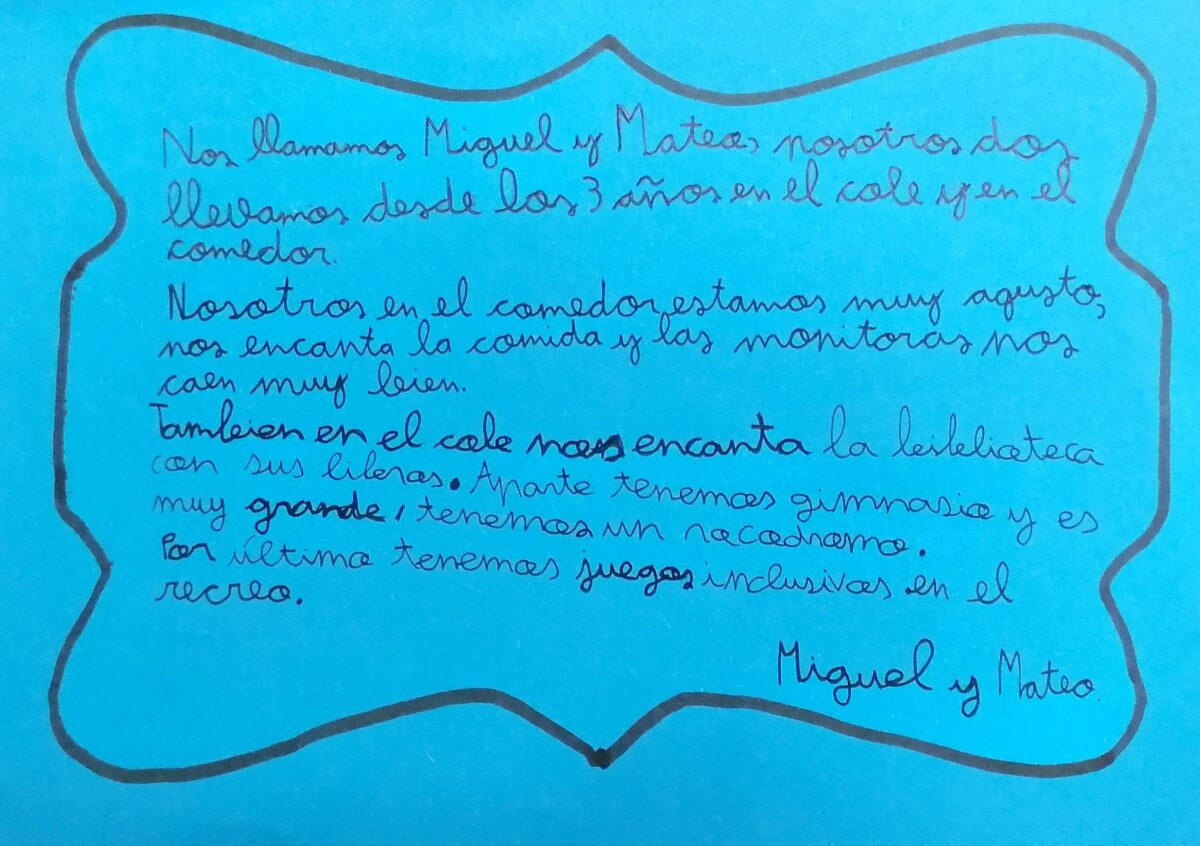 Nos llamamos Miguel y Mateo, nosotros dos
llevamos desde los 3 años en el cole y en el
comedor.
Nosotros en el comedor estamos muy agusto,
nos encanta la comida y las monitoras nos
caen muy bien.
Tambien en el cole nos encanta la biblioteca
con sus libros. Aparte tenemos gimnasio y es
muy grande, tenemos un rocodromo.
Por último tenemos juegos inclusivos en el
recreo.
Miguel y Mateo.